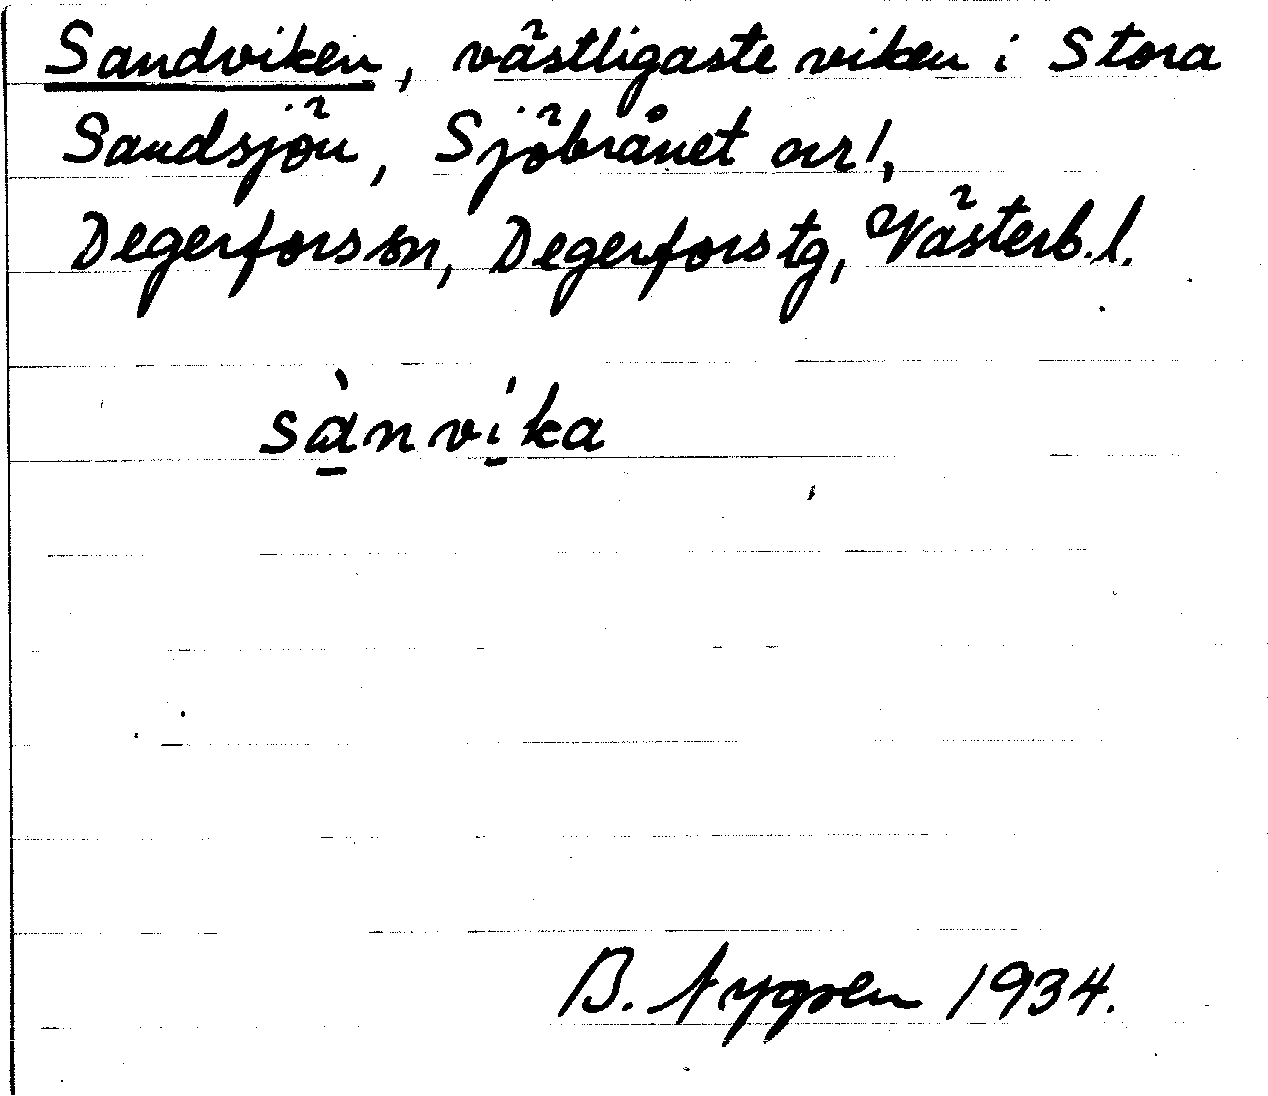 Sandviken, västligaste viken i Stora
Sandsjön, Sjöbrånet avr!,
Degerforssn, Degerfors tg, Västerb. l.
sànvi̍ka
B. Nygren 1934.